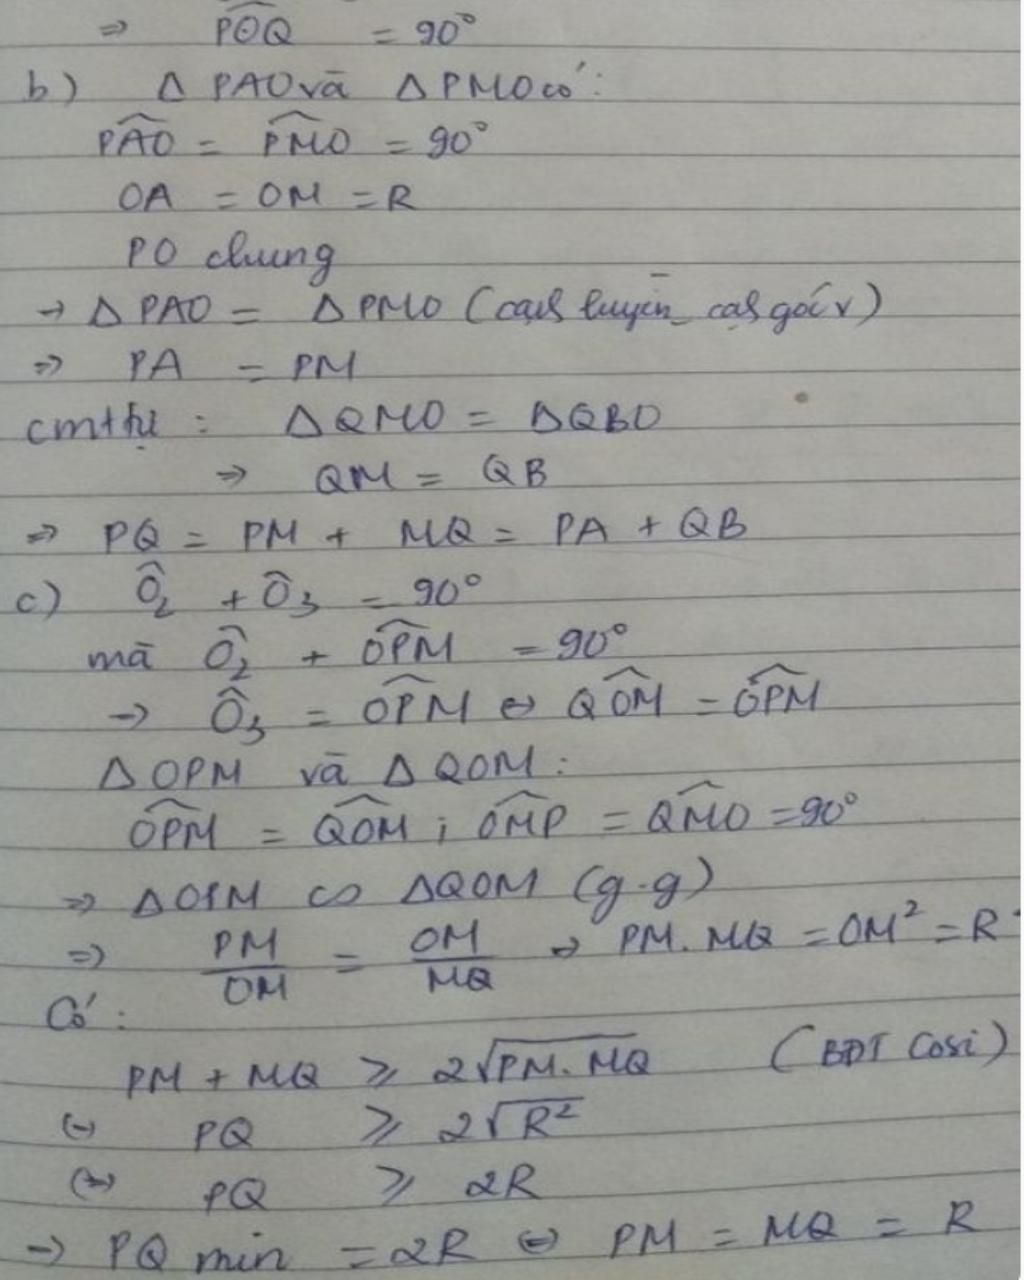 ⇒ P̂OQ = 90°
b) Δ PAO và Δ PMO có:
P̂AO = P̂MO = 90°
OA = OM = R
PO chung
→ Δ PAO = Δ PMO (cạnh huyền_ cạh góc v)
⇒ PA = PM
cmttự : Δ QMO = Δ QBO
⇒ QM = QB
⇒ PQ = PM + MQ = PA + QB
c) Ô₂ + Ô₃ = 90°
mà Ô₂ + ÔPM = 90°
→ Ô₃ = ÔPM ⇔ Q̂OM = ÔPM
Δ OPM và Δ QOM :
ÔPM = Q̂OM ; ÔMP = Q̂MO = 90°
⇒ Δ OPM ∽ Δ QOM (g.g)
⇒ PM/OM = OM/MQ → PM.MQ = OM² = R
Có :
PM + MQ ≥ 2√PM.MQ (BĐT Cosi)
(⇔) PQ ≥ 2√R²
(⇔) PQ ≥ 2R
→ PQ min = 2R ⇔ PM = MQ = R